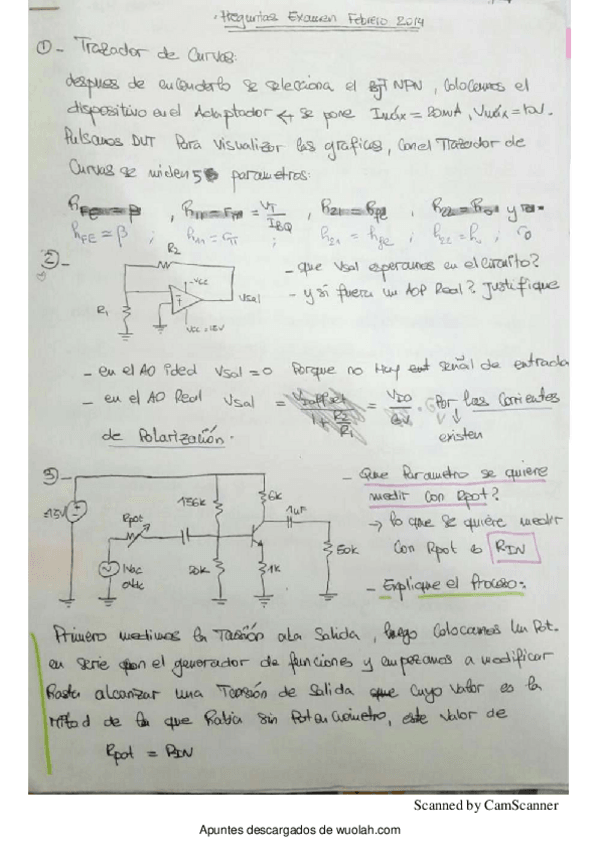 Preguntas Examen Febrero 2014
①- Trazador de Curvas:
despues de encenderlo se selecciona el BJT NPN, Colocamos el
dispositivo en el Adaptador y se pone Imáx = 20mA, Vmáx = 10V.
Pulsamos DUT Para visualizar las graficas, Con el Trazador de
Curvas se miden 5 parametros:
hFE = β , h11 = rπ = VT/IBQ , h21 = hfe , h22 = ho y ro
hFE ≈ β ; h11 = rπ ; h21 = hfe ; h22 = ho ; ro
2-
R2
R1
-Vcc
Vsal
Vcc = 15V
- que Vsal esperamos en el circuito?
- y si fuera un AOP Real? Justifique
- en el AO ideal Vsal = 0 Porque no Hay señal de entrada
- en el AO Real Vsal = = VDO/ . Por las Corrientes
de Polarización. existen
3-
15V
Rpot
156k
6k
1µF
50k
1k
1Vac
0Vdc
- Que Parametro se quiere
medir con Rpot?
→ lo que se quiere medir
Con Rpot es RIN
- Explique el Proceso:
Primero medimos la Tensión a la Salida, luego Colocamos un Pot.
en serie con el generador de funciones y empezamos a modificar
hasta alcanzar una Tensión de Salida que cuyo valor es la
mitad de la que había sin Potenciometro, este valor de
Rpot = RIN
Scanned by CamScanner
Apuntes descargados de wuolah.com